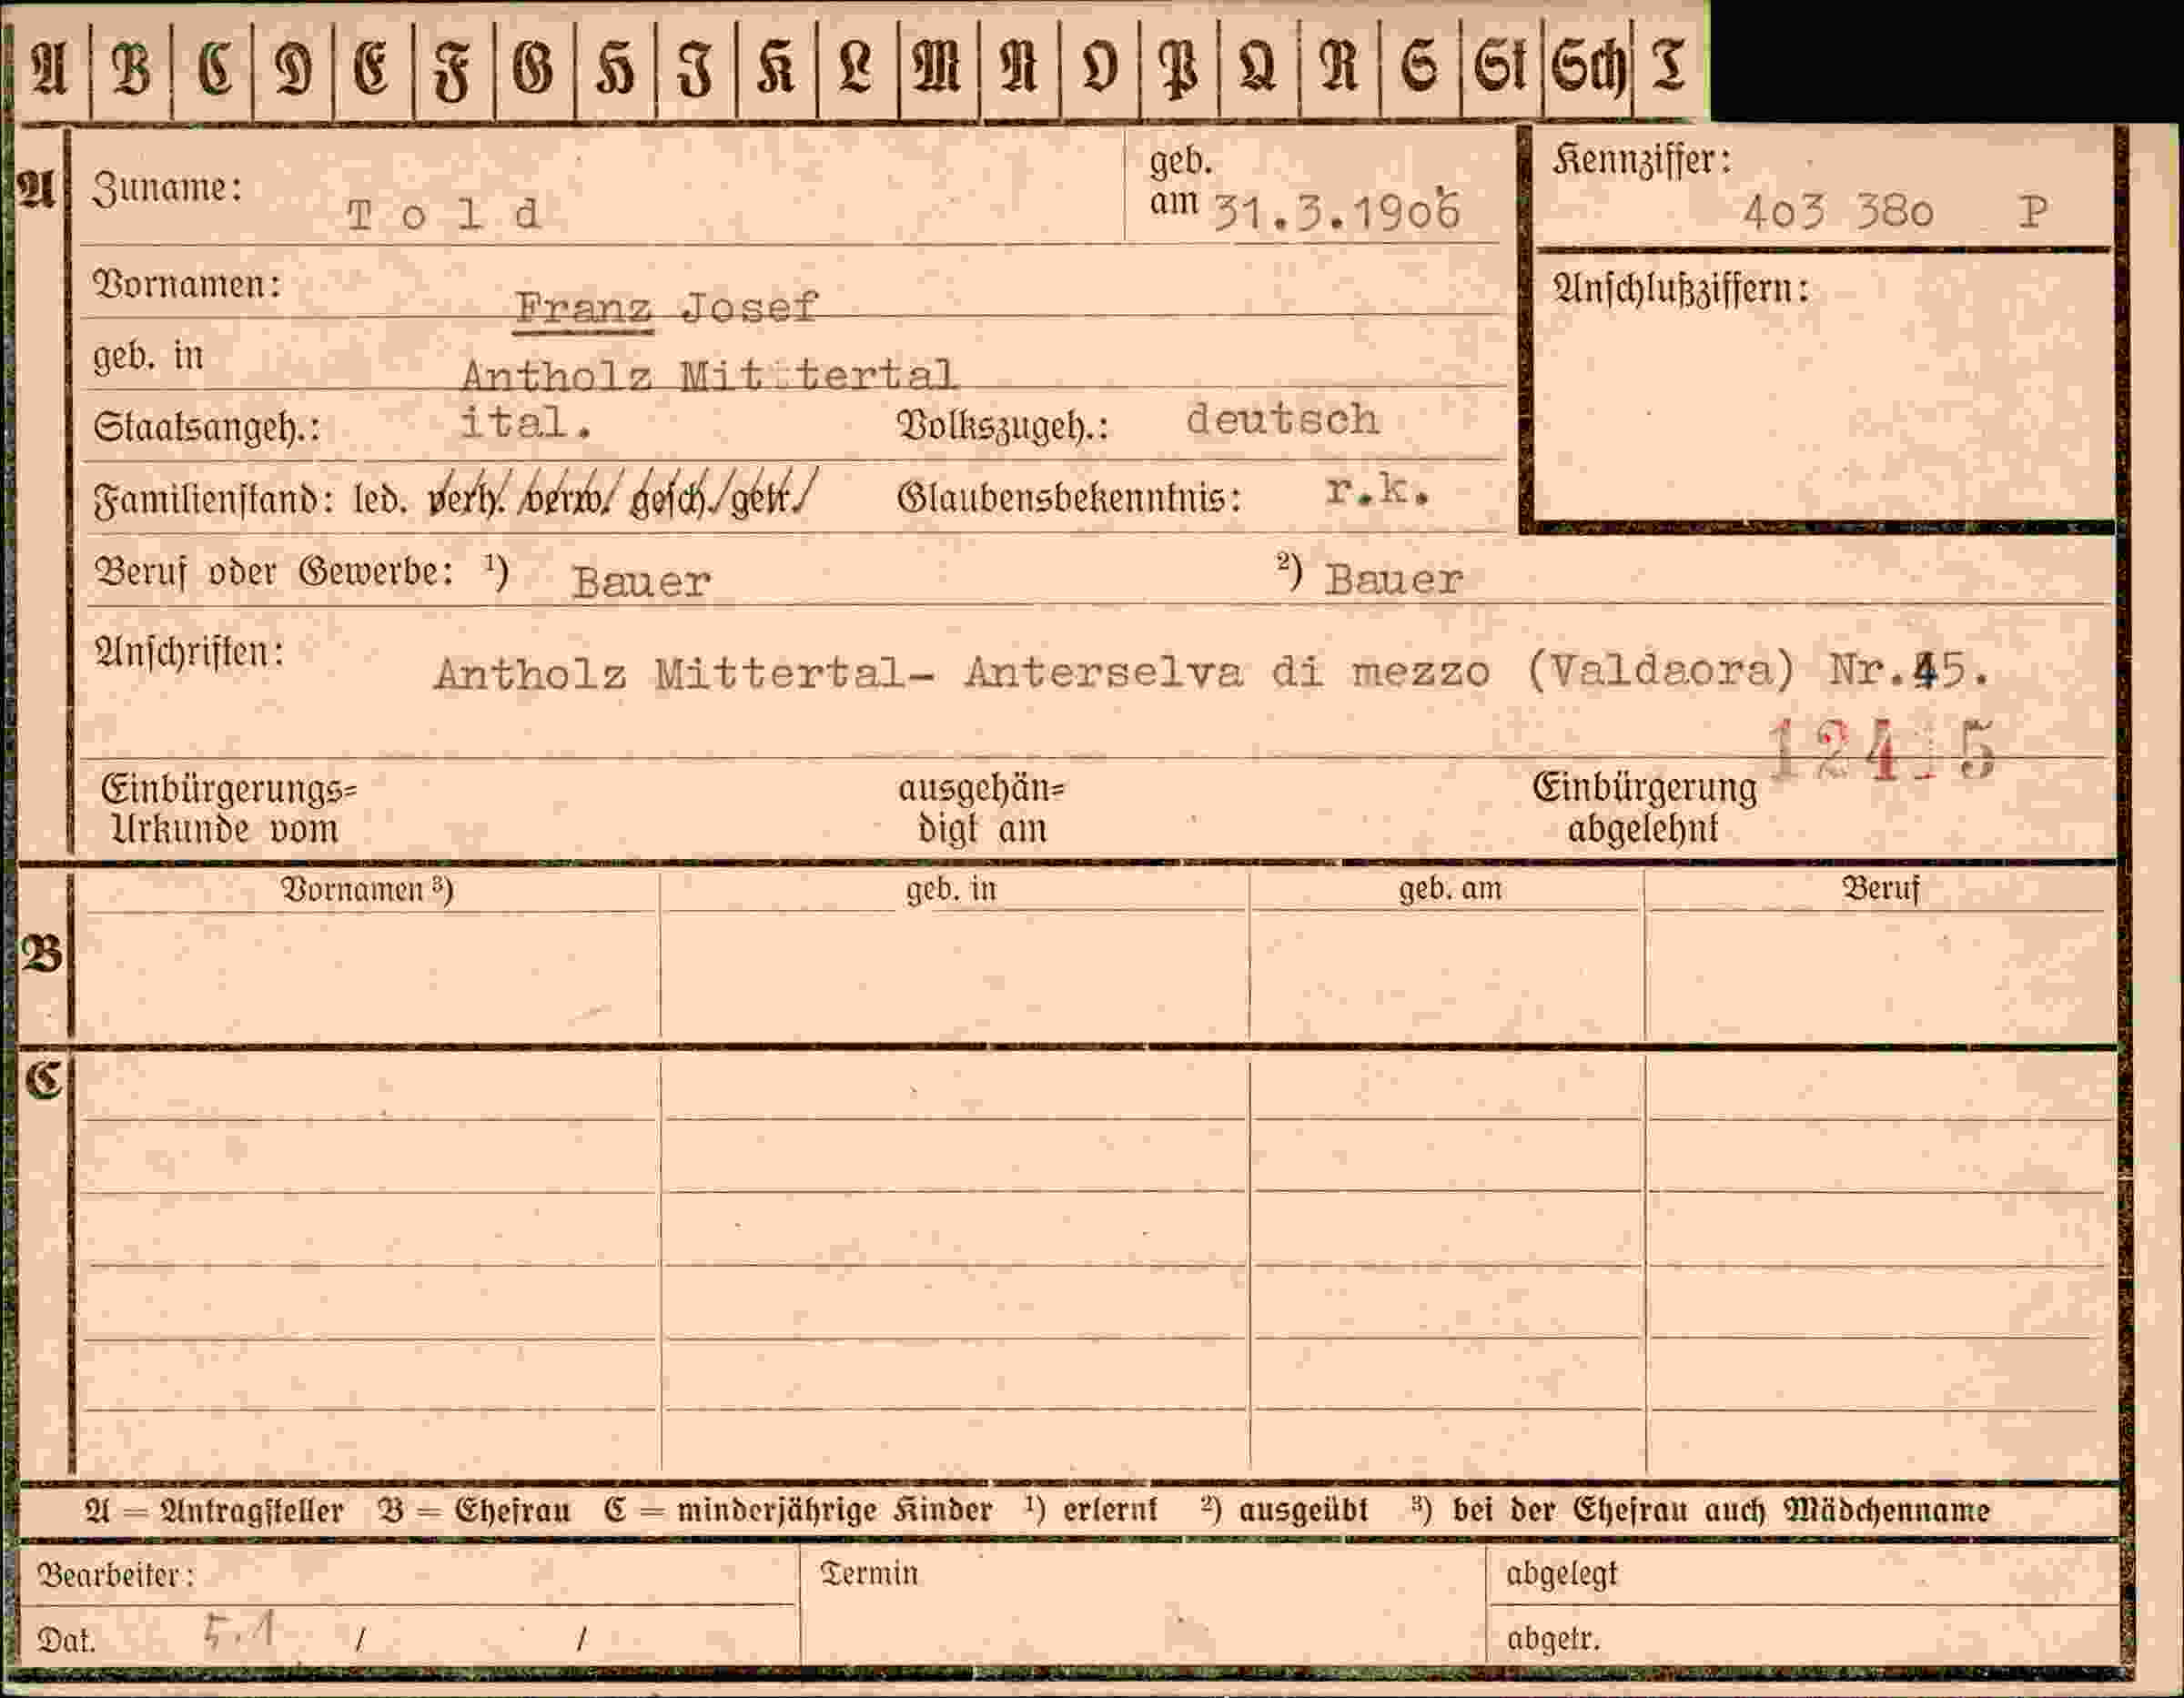 A B C D E F G H I K L M N O P Q R S St Sch T
A Zuname: Told geb. am 31.3.1906 Kennziffer: 403 380 P
Vornamen: Franz Josef Anschlußziffern:
geb. in Antholz Mit tertal
Staatsangeh.: ital. Volkszugeh.: deutsch
Familienstand: led. verh. verw. gesch. getr. Glaubensbekenntnis: r.k.
Beruf oder Gewerbe: ¹) Bauer ²) Bauer
Anschriften: Antholz Mittertal- Anterselva di mezzo (Valdaora) Nr.45.
Einbürgerungs= ausgehän= Einbürgerung
Urkunde vom digt am abgelehnt
Vornamen ³) geb. in geb. am Beruf
B
C
A = Antragsteller B = Ehefrau C = minderjährige Kinder ¹) erlernt ²) ausgeübt ³) bei der Ehefrau auch Mädchenname
Bearbeiter: Termin abgelegt
Dat. 5.1 / / abgetr.